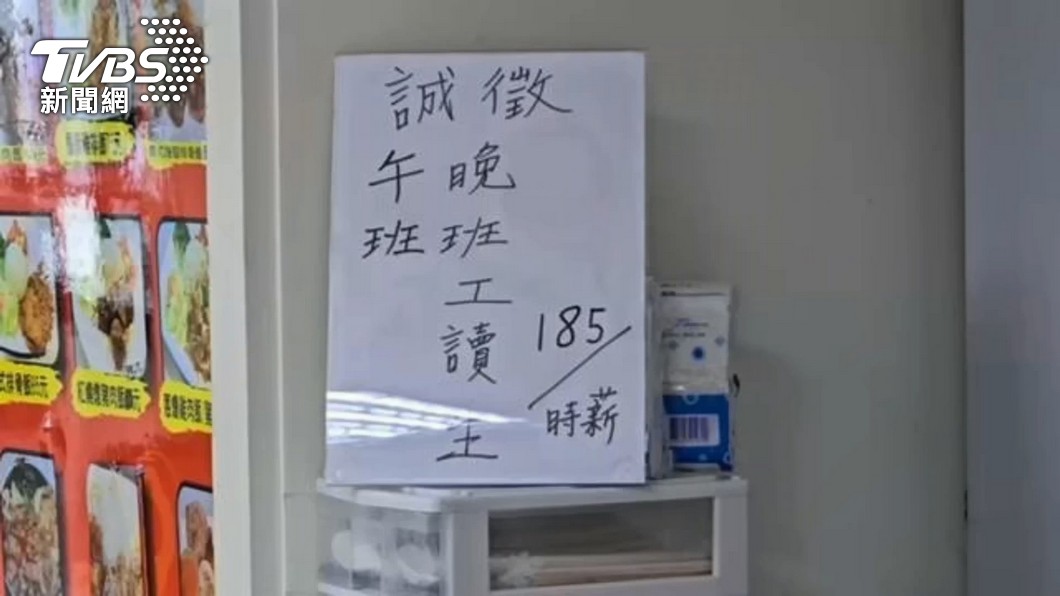 TVBS
新聞網
誠徵
午班
晚班工讀生
185/時薪